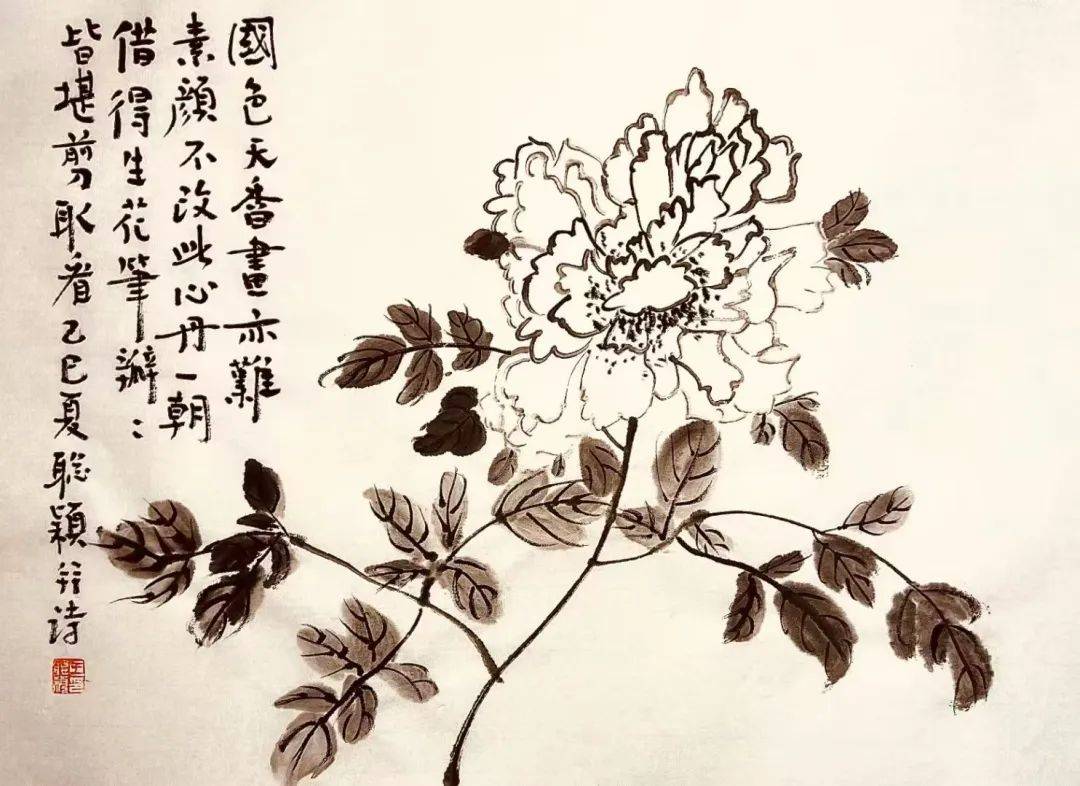 國色天香畫亦難
素顏不改此心丹一朝
借得生花筆瓣〻
皆堪剪取看乙巳夏聰穎并詩